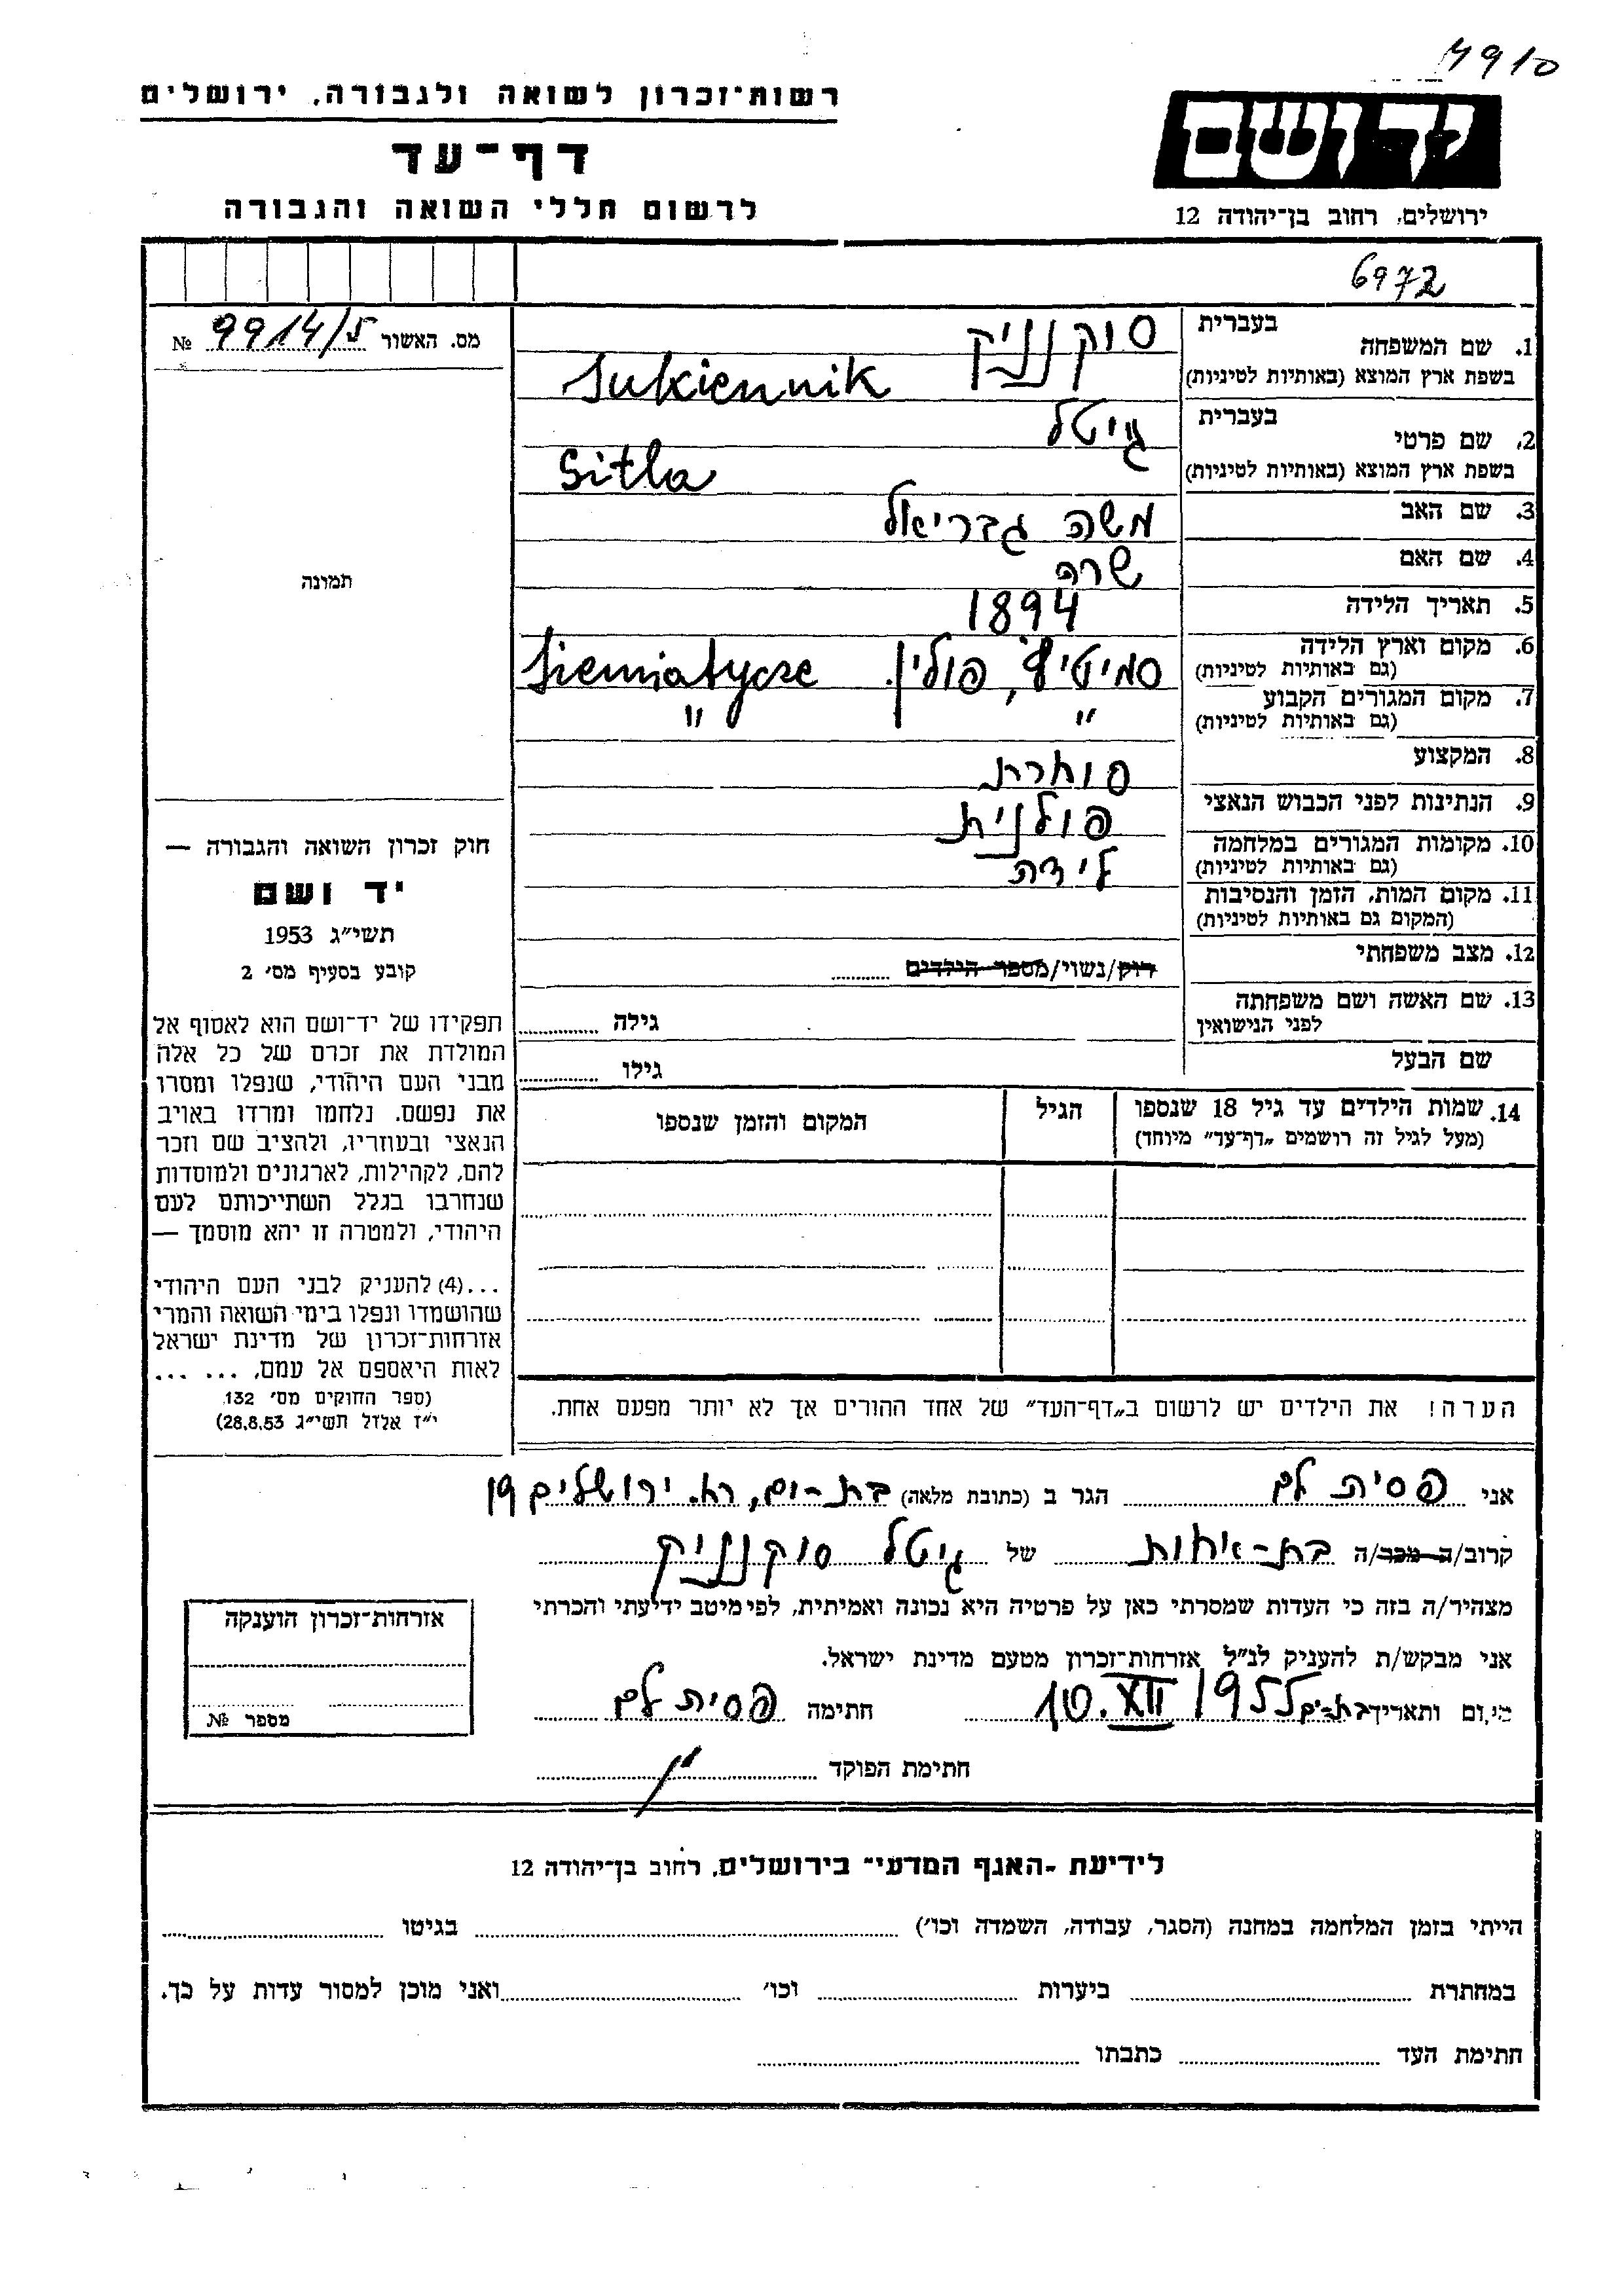 4910
רשות־זכרון לשואה ולגבורה, ירושלים
דף־עד
לרשום חללי השואה והגבורה
יד ושם
ירושלים, רחוב בן־יהודה 12
6972
מס. האשור 9914/5 №
תמונה
חוק זכרון השואה והגבורה —
יד ושם
תשי"ג 1953
קובע בסעיף מס' 2
תפקידו של יד־ושם הוא לאסוף אל
המולדת את זכרם של כל אלה
מבני העם היהודי, שנפלו ומסרו
את נפשם, נלחמו ומרדו באויב
הנאצי ובעוזריו, ולהציב שם וזכר
להם, לקהילות, לארגונים ולמוסדות
שנחרבו בגלל השתייכותם לעם
היהודי, ולמטרה זו יהא מוסמך —
...(4) להעניק לבני העם היהודי
שהושמדו ונפלו בימי השואה והמרי
אזרחות־זכרון של מדינת ישראל
לאות היאספם אל עמם. ... ...
(ספר החוקים מס' 132,
י"ז אלול תשי"ג 28.8.53)
1. שם המשפחה בעברית סוקניק
בשפת ארץ המוצא (באותיות לטיניות) Sukiennik
2. שם פרטי בעברית גיטל
בשפת ארץ המוצא (באותיות לטיניות) Gitla
3. שם האב משה גבריאל
4. שם האם שרה
5. תאריך הלידה 1894
6. מקום וארץ הלידה (גם באותיות לטיניות) פולין. Siemiatycze
7. מקום המגורים הקבוע (גם באותיות לטיניות) " "
8. המקצוע סוחרת
9. הנתינות לפני הכבוש הנאצי פולנית
10. מקומות המגורים במלחמה (גם באותיות לטיניות) לידה
11. מקום המות, הזמן והנסיבות
(המקום גם באותיות לטיניות)
12. מצב משפחתי רוק/נשוי/מספר הילדים
13. שם האשה ושם משפחתה לפני הנישואין גילה
שם הבעל גילו
14. שמות הילדים עד גיל 18 שנספו
(מעל לגיל זה רושמים "דף־עד" מיוחד)
הגיל
המקום והזמן שנספו
הערה! את הילדים יש לרשום ב"דף־העד" של אחד ההורים אך לא יותר מפעם אחת.
אני פסית לם הגר ב (כתובת מלאה) בת-ים, רח. ירושלים 19
קרוב/ה מכר/ה בת-אחות של גיטל סוקניק
מצהיר/ה בזה כי העדות שמסרתי כאן על פרטיה היא נכונה ואמיתית, לפי מיטב ידיעתי והכרתי
אני מבקש/ת להעניק לנ"ל אזרחות־זכרון מטעם מדינת ישראל.
מקום ותאריך בת-ים 10.XII 1955 חתימה פסית לם
חתימת הפוקד
אזרחות־זכרון הוענקה
מספר №
לידיעת "האגף המדעי" בירושלים, רחוב בן־יהודה 12
הייתי בזמן המלחמה במחנה (הסגר, עבודה, השמדה וכו') בגיטו
במחתרת ביערות וכו' ואני מוכן למסור עדות על כך.
חתימת העד כתבתו